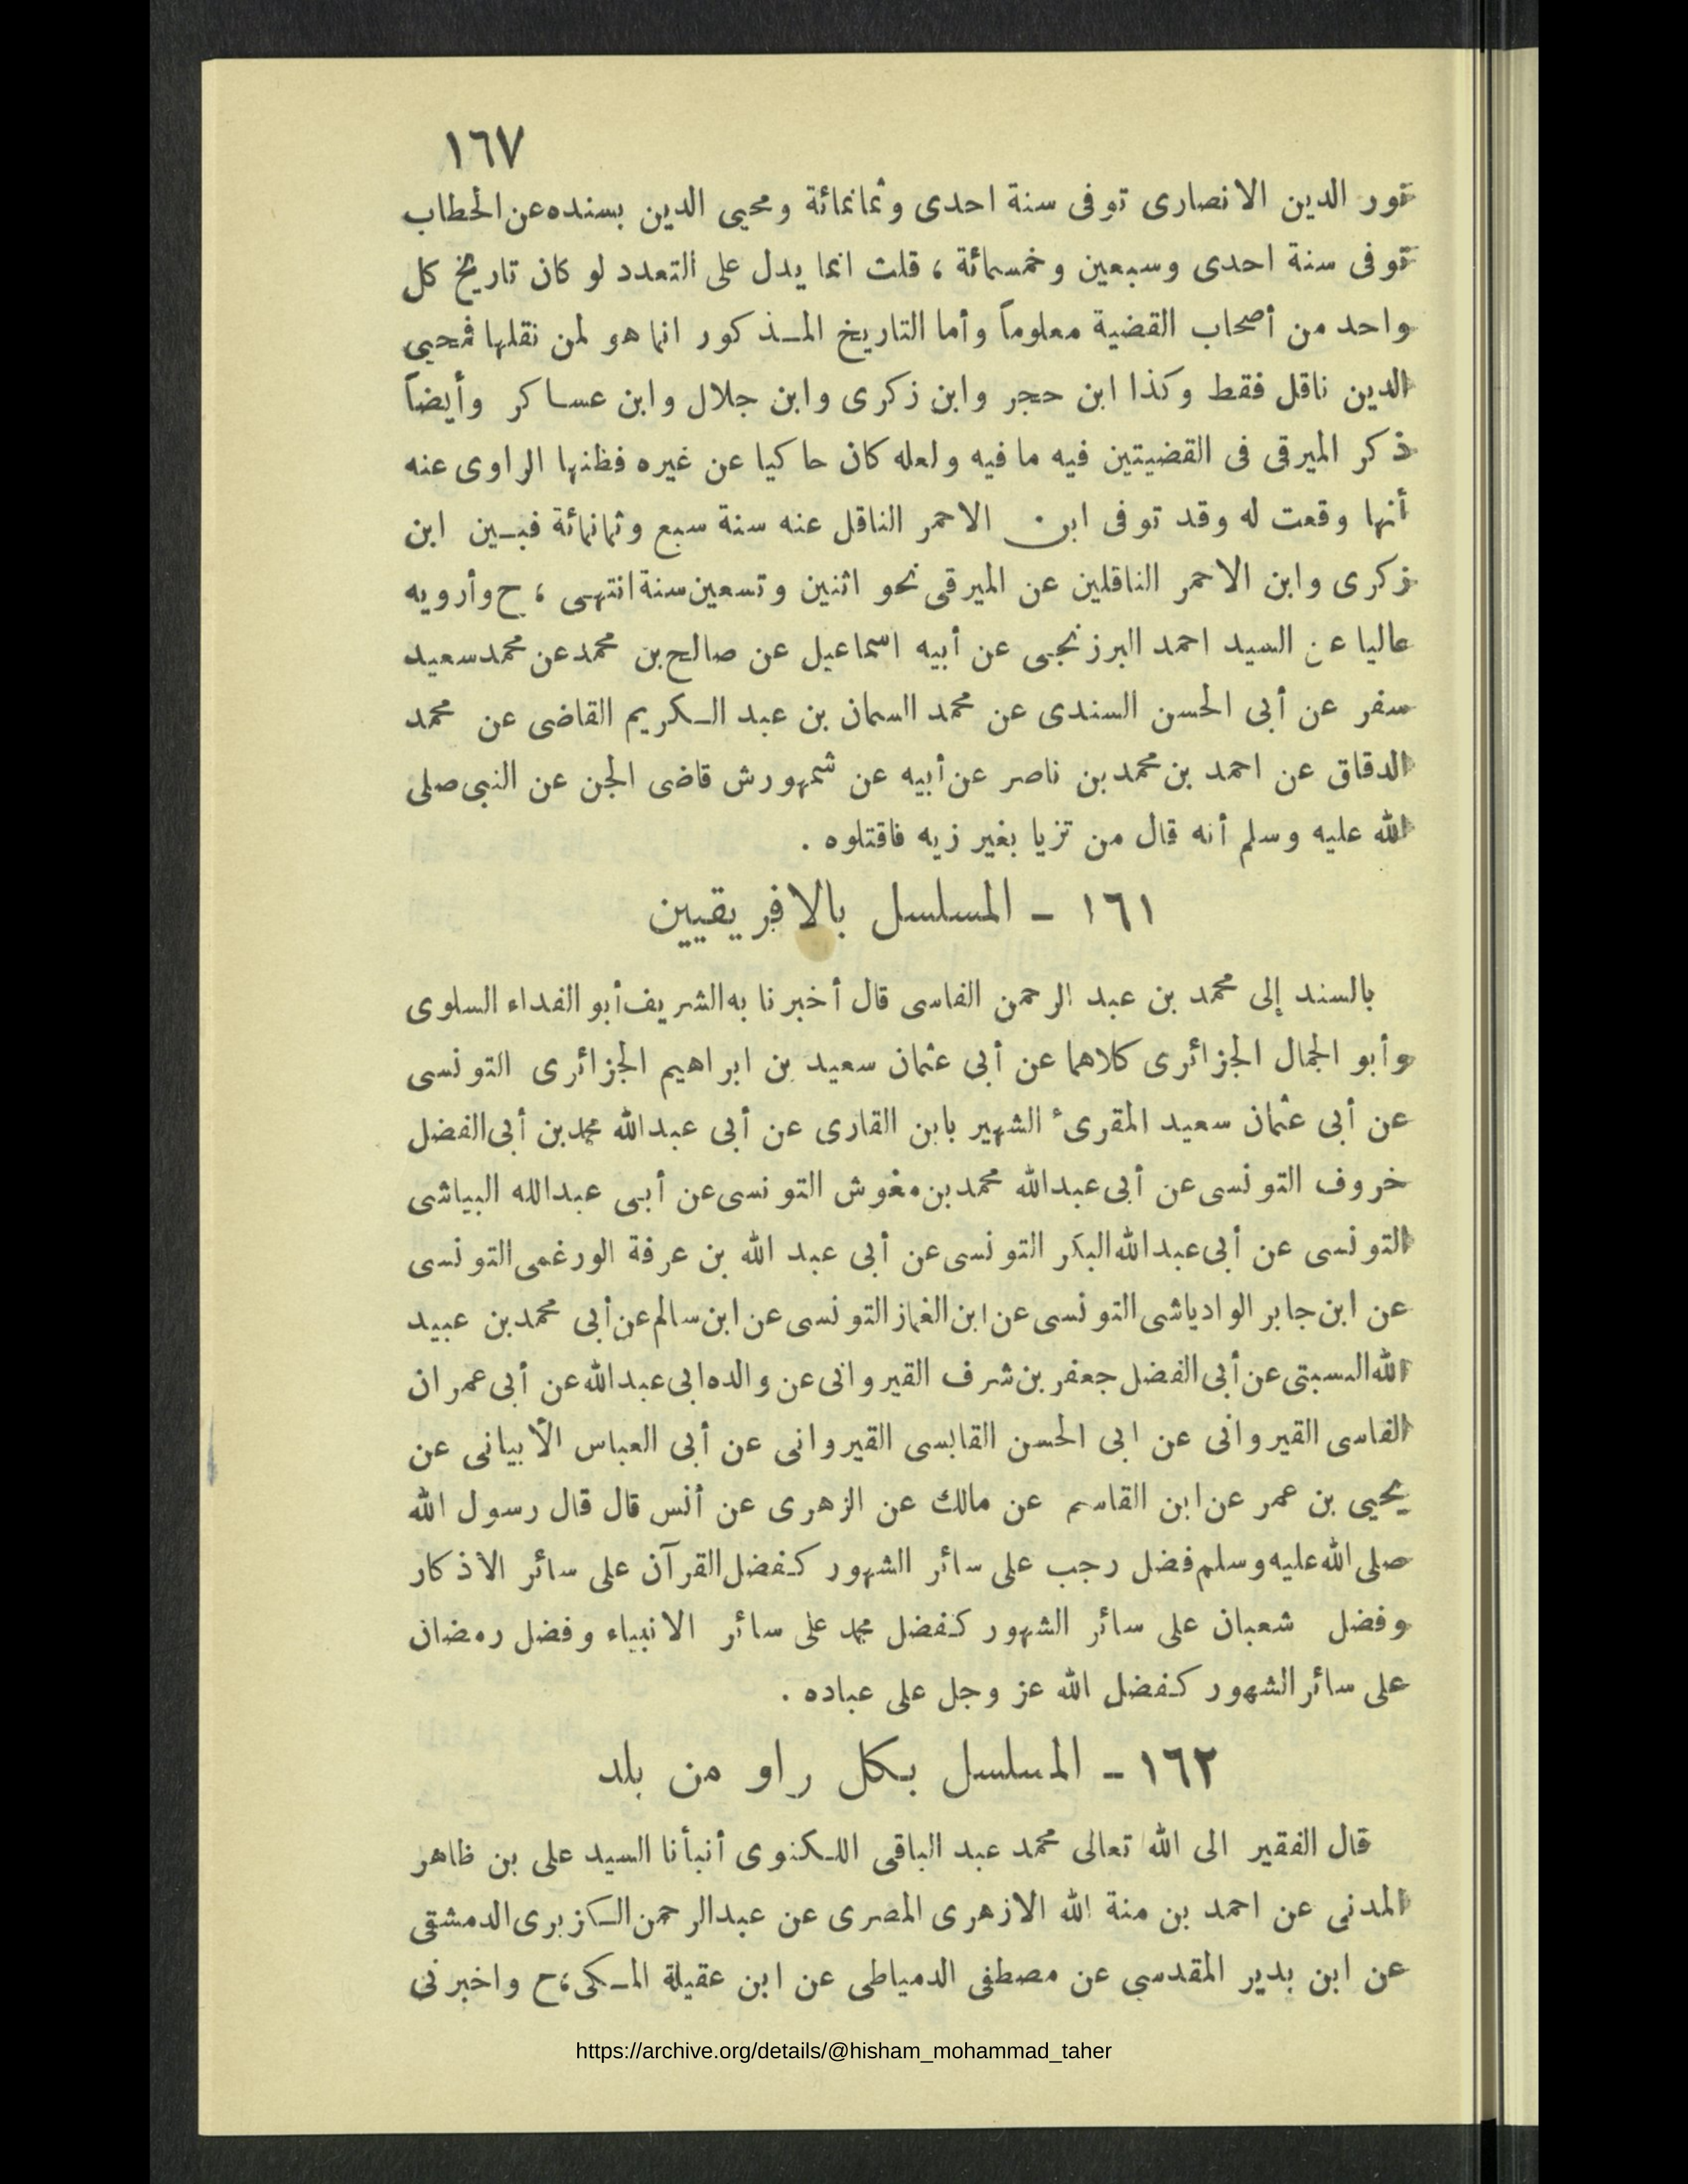 ١٦٧
نور الدين الانصارى توفى سنة احدى وثمانمائة ومحيى الدين بسنده عن الحطاب
توفى سنة احدى وسبعين وخمسمائة ، قلت انما يدل على التعدد لو كان تاريخ كل
واحد من أصحاب القضية معلوماً وأما التاريخ المذكور انما هو لمن نقلها فمحيى
الدين ناقل فقط وكذا ابن حجر وابن زكرى وابن جلال وابن عساكر وأيضاً
ذكر الميرقى فى القضيتين فيه ما فيه ولعله كان حاكيا عن غيره فظنها الراوى عنه
أنها وقعت له وقد توفى ابن الاحمر الناقل عنه سنة سبع وثمانمائة فبين ابن
زكرى وابن الاحمر الناقلين عن الميرقى نحو اثنين وتسعين سنة انتهى ، ح وأرويه
عاليا عن السيد احمد البرزنجى عن أبيه اسماعيل عن صالح بن محمد عن محمد سعيد
سفر عن أبى الحسن السندى عن محمد السمان بن عبد الكريم القاضى عن محمد
الدقاق عن احمد بن محمد بن ناصر عن أبيه عن شمهورش قاضى الجن عن النبى صلى
الله عليه وسلم أنه قال من تزيا بغير زيه فاقتلوه .
١٦١ - المسلسل بالافريقيين
بالسند إلى محمد بن عبد الرحمن الفاسى قال أخبرنا به الشريف أبو الفداء السلوى
وأبو الجمال الجزائرى كلاهما عن أبى عثمان سعيد بن ابراهيم الجزائرى التونسى
عن أبى عثمان سعيد المقرئ الشهير بابن القارى عن أبى عبدالله محمد بن أبى الفضل
خروف التونسى عن أبى عبدالله محمد بن مغوش التونسى عن أبى عبدالله البياشى
التونسى عن أبى عبدالله البكر التونسى عن أبى عبد الله بن عرفة الورغمى التونسى
عن ابن جابر الوادياشى التونسى عن ابن الغماز التونسى عن ابن سالم عن أبى محمد بن عبيد
الله السبتى عن أبى الفضل جعفر بن شرف القيروانى عن والده ابى عبدالله عن أبى عمران
الفاسى القيروانى عن ابى الحسن القابسى القيروانى عن أبى العباس الأبيانى عن
يحيى بن عمر عن ابن القاسم عن مالك عن الزهرى عن أنس قال قال رسول الله
صلى الله عليه وسلم فضل رجب على سائر الشهور كفضل القرآن على سائر الاذكار
وفضل شعبان على سائر الشهور كفضل محمد على سائر الانبياء وفضل رمضان
على سائر الشهور كفضل الله عز وجل على عباده .
١٦٢ - المسلسل بكل راو من بلد
قال الفقير الى الله تعالى محمد عبد الباقى اللكنوى أنبأنا السيد على بن ظاهر
المدنى عن احمد بن منة الله الازهرى المصرى عن عبدالرحمن الكزبرى الدمشقى
عن ابن بدير المقدسى عن مصطفى الدمياطى عن ابن عقيلة المكى ، ح واخبرنى
https://archive.org/details/@hisham_mohammad_taher